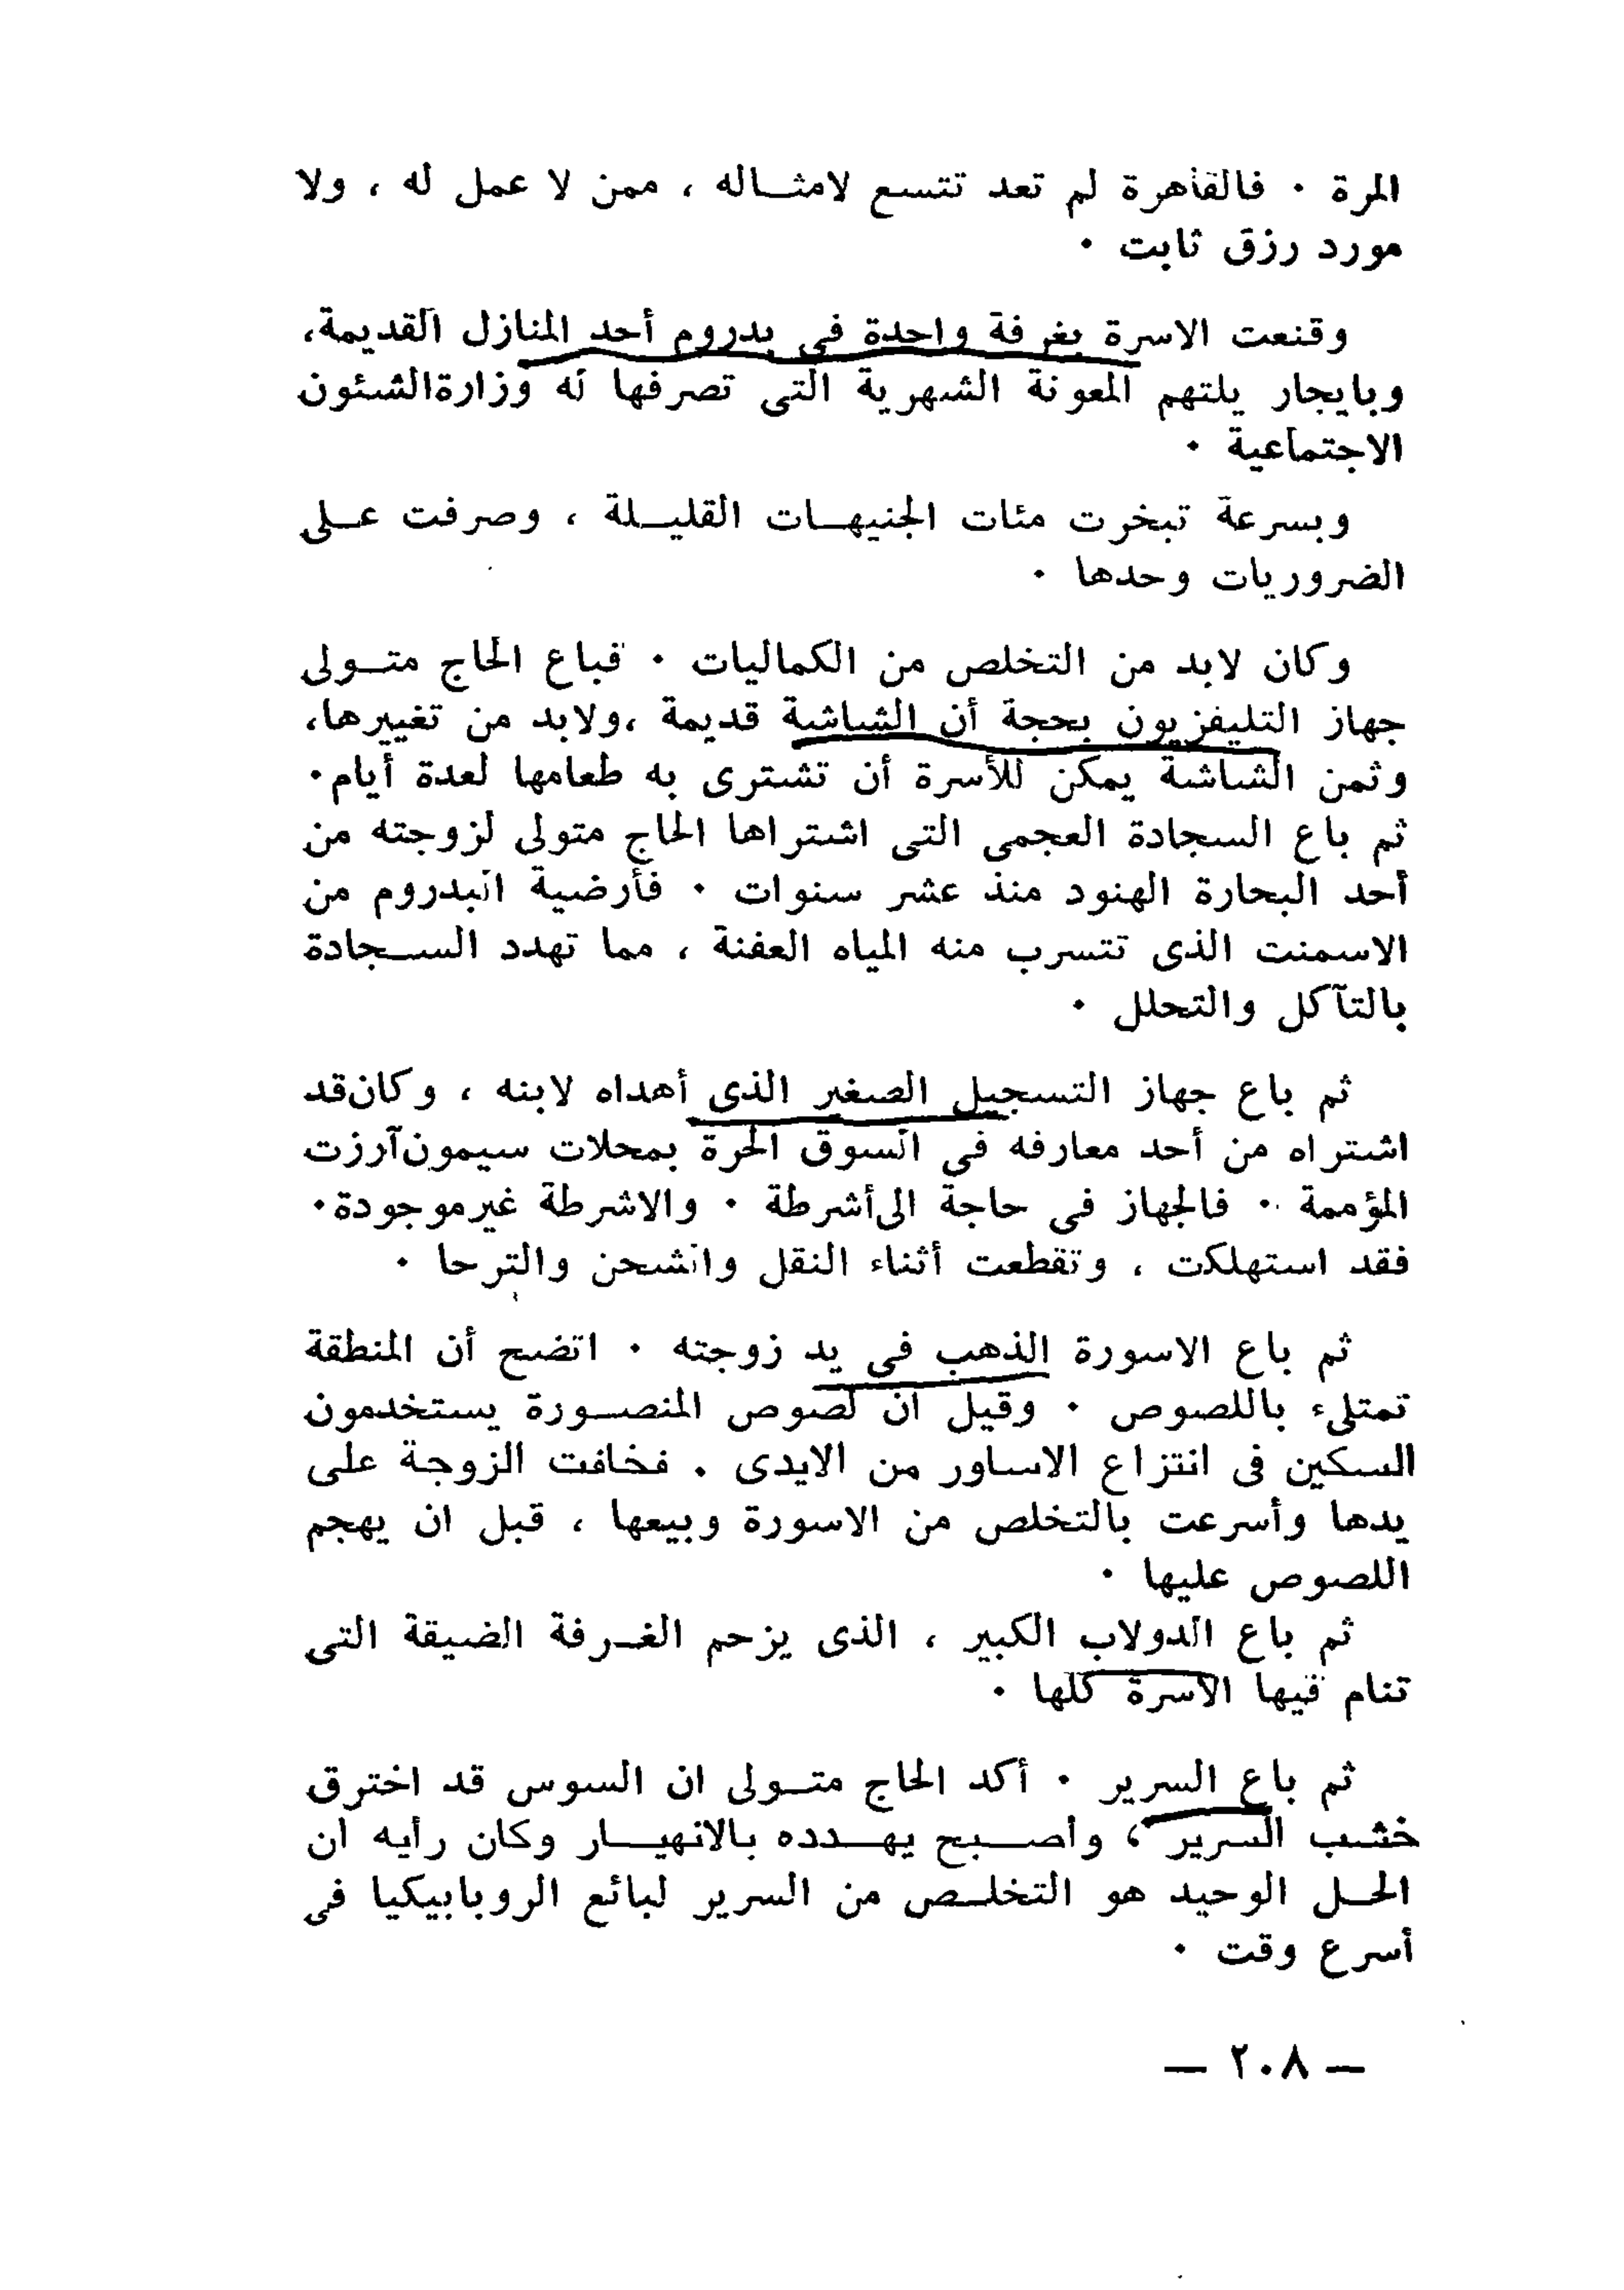 المرة ٠ فالقاهرة لم تعد تتسع لامثـاله ، ممن لا عمل له ، ولا
مورد رزق ثابت ٠
وقنعت الاسرة بغرفة واحدة فى بدروم أحد المنازل القديمة،
وبايجار يلتهم المعونة الشهرية التى تصرفها له وزارةالشئون
الاجتماعية ٠
وبسرعة تبخرت مئات الجنيهـات القليـلة ، وصرفت عـلى
الضروريات وحدها ٠
وكان لابد من التخلص من الكماليات ٠ فباع الحاج متـولى
جهاز التليفزيون بحجة أن الشاشة قديمة ،ولابد من تغييرها،
وثمن الشاشة يمكن للأسرة أن تشترى به طعامها لعدة أيام٠
ثم باع السجادة العجمى التى اشتراها الحاج متولى لزوجته من
أحد البحارة الهنود منذ عشر سنوات ٠ فأرضية البدروم من
الاسمنت الذى تتسرب منه المياه العفنة ، مما تهدد السـجادة
بالتآكل والتحلل ٠
ثم باع جهاز التسجيل الصغير الذى أهداه لابنه ، وكان‌قد
اشتراه من أحد معارفه فى السوق الحرة بمحلات سيمون‌آرزت
المؤممة ٠ فالجهاز فى حاجة الى‌أشرطة ٠ والاشرطة غيرموجودة٠
فقد استهلكت ، وتقطعت أثناء النقل والشحن والترحا ٠
ثم باع الاسورة الذهب فى يد زوجته ٠ اتضح أن المنطقة
تمتلىء باللصوص ٠ وقيل ان لصوص المنصـورة يستخدمون
السكين فى انتزاع الاساور من الايدى . فخافت الزوجة على
يدها وأسرعت بالتخلص من الاسورة وبيعها ، قبل ان يهجم
اللصوص عليها ٠
ثم باع الدولاب الكبير ، الذى يزحم الغـرفة الضيقة التى
تنام فيها الاسرة كلها ٠
ثم باع السرير ٠ أكد الحاج متـولى ان السوس قد اخترق
خشب السرير ، وأصـبح يهـدده بالانهيـار وكان رأيه ان
الحـل الوحيد هو التخلـص من السرير لبائع الروبابيكيا فى
أسرع وقت ٠
— ٢٠٨ —